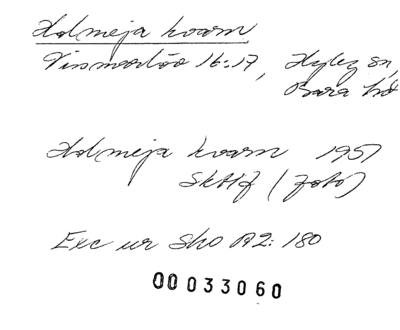 Holmeja kvarn
Vinninge 16:17, Hyby sn,
Bara hd
Holmeja kvarn 1957
(foto)
Exc ur Sko A2: 180
00033060